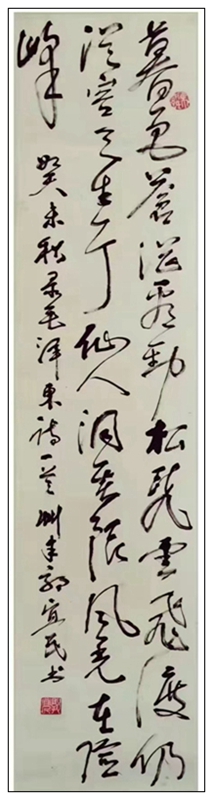 暮色蒼茫看勁松亂雲飛渡仍
從容天生一个仙人洞無限風光在險
峰
癸未秋录毛泽东诗一首郭宜民书